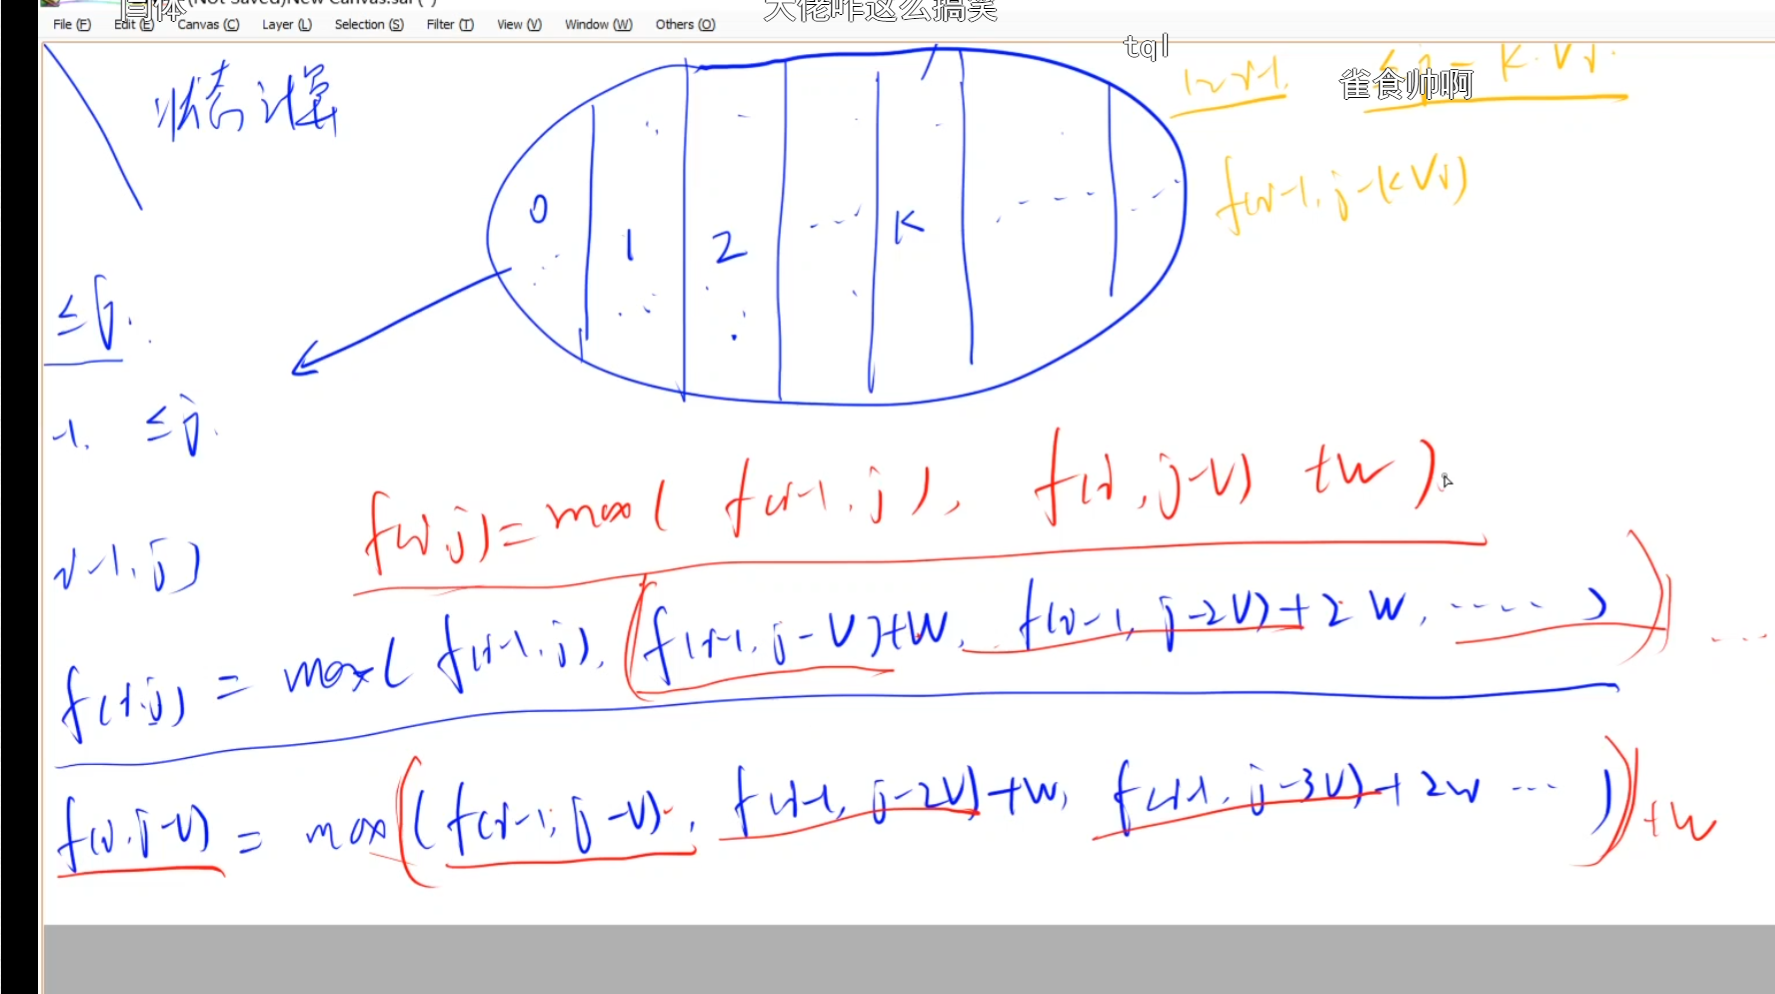 (Not Saved)New Canvas.sai (*)
大佬咋这么搞笑
File (F) Edit (E) Canvas (C) Layer (L) Selection (S) Filter (T) View (V) Window (W) Others (O)
tql
雀食帅啊
状态计算
1~i-1.
f(i-1, j-kvi)
0 1 2 ... k
≤j.
-1. ≤j.
i-1, j)
f(i,j) = max( f(i-1, j), f(i, j-v) +w ).
f(i,j) = max( f(i-1, j), f(i-1, j-v)+w, f(i-1, j-2v)+2w, ..... )
f(i, j-v) = max( f(i-1, j-v), f(i-1, j-2v)+w, f(i-1, j-3v)+2w ... ) +w